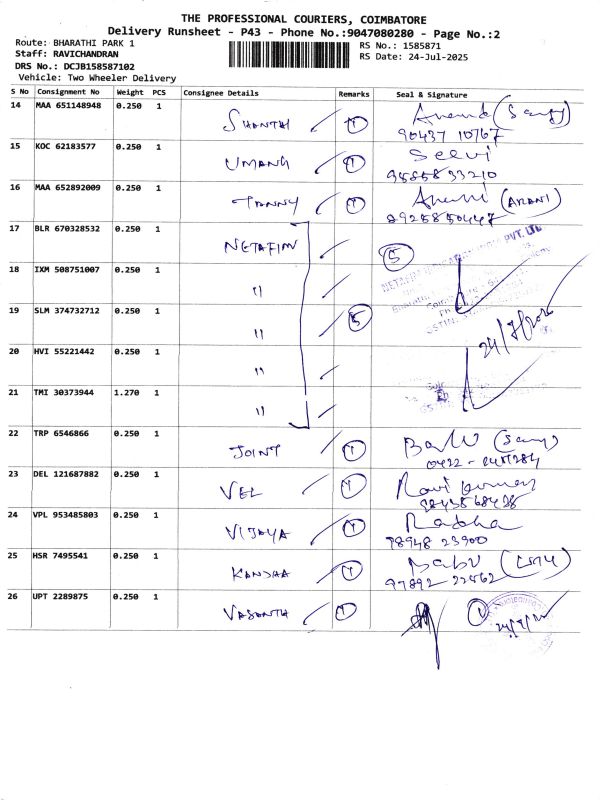 THE PROFESSIONAL COURIERS, COIMBATORE
Delivery Runsheet - P43 - Phone No.:9047080280 - Page No.:2
Route: BHARATHI PARK 1
Staff: RAVICHANDRAN
DRS No.: DCJB158587102
Vehicle: Two Wheeler Delivery
RS No.: 1585871
RS Date: 24-Jul-2025
S No Consignment No Weight PCS Consignee Details Remarks Seal & Signature
14 MAA 651148948 0.250 1 SHANTHI 1
90437 10767
15 KOC 62183577 0.250 1 UMANG 1 Selvi
95858 33210
16 MAA 652892009 0.250 1 1 (ARANI)
8925850447
17 BLR 670328532 0.250 1 NETAFIM 5
PVT. LTD
18 IXM 508751007 0.250 1 "
19 SLM 374732712 0.250 1 " 5
20 HVI 55221442 0.250 1 "
21 TMI 30373944 1.270 1 "
22 TRP 6546866 0.250 1 JOINT 1
23 DEL 121687882 0.250 1 VEL 1 Ravi kumar
24 VPL 953485803 0.250 1 VIJAYA 1 Radha
98948 23900
25 HSR 7495541 0.250 1 1 Babu
97892 22562
26 UPT 2289875 0.250 1 VASANTH 1 1